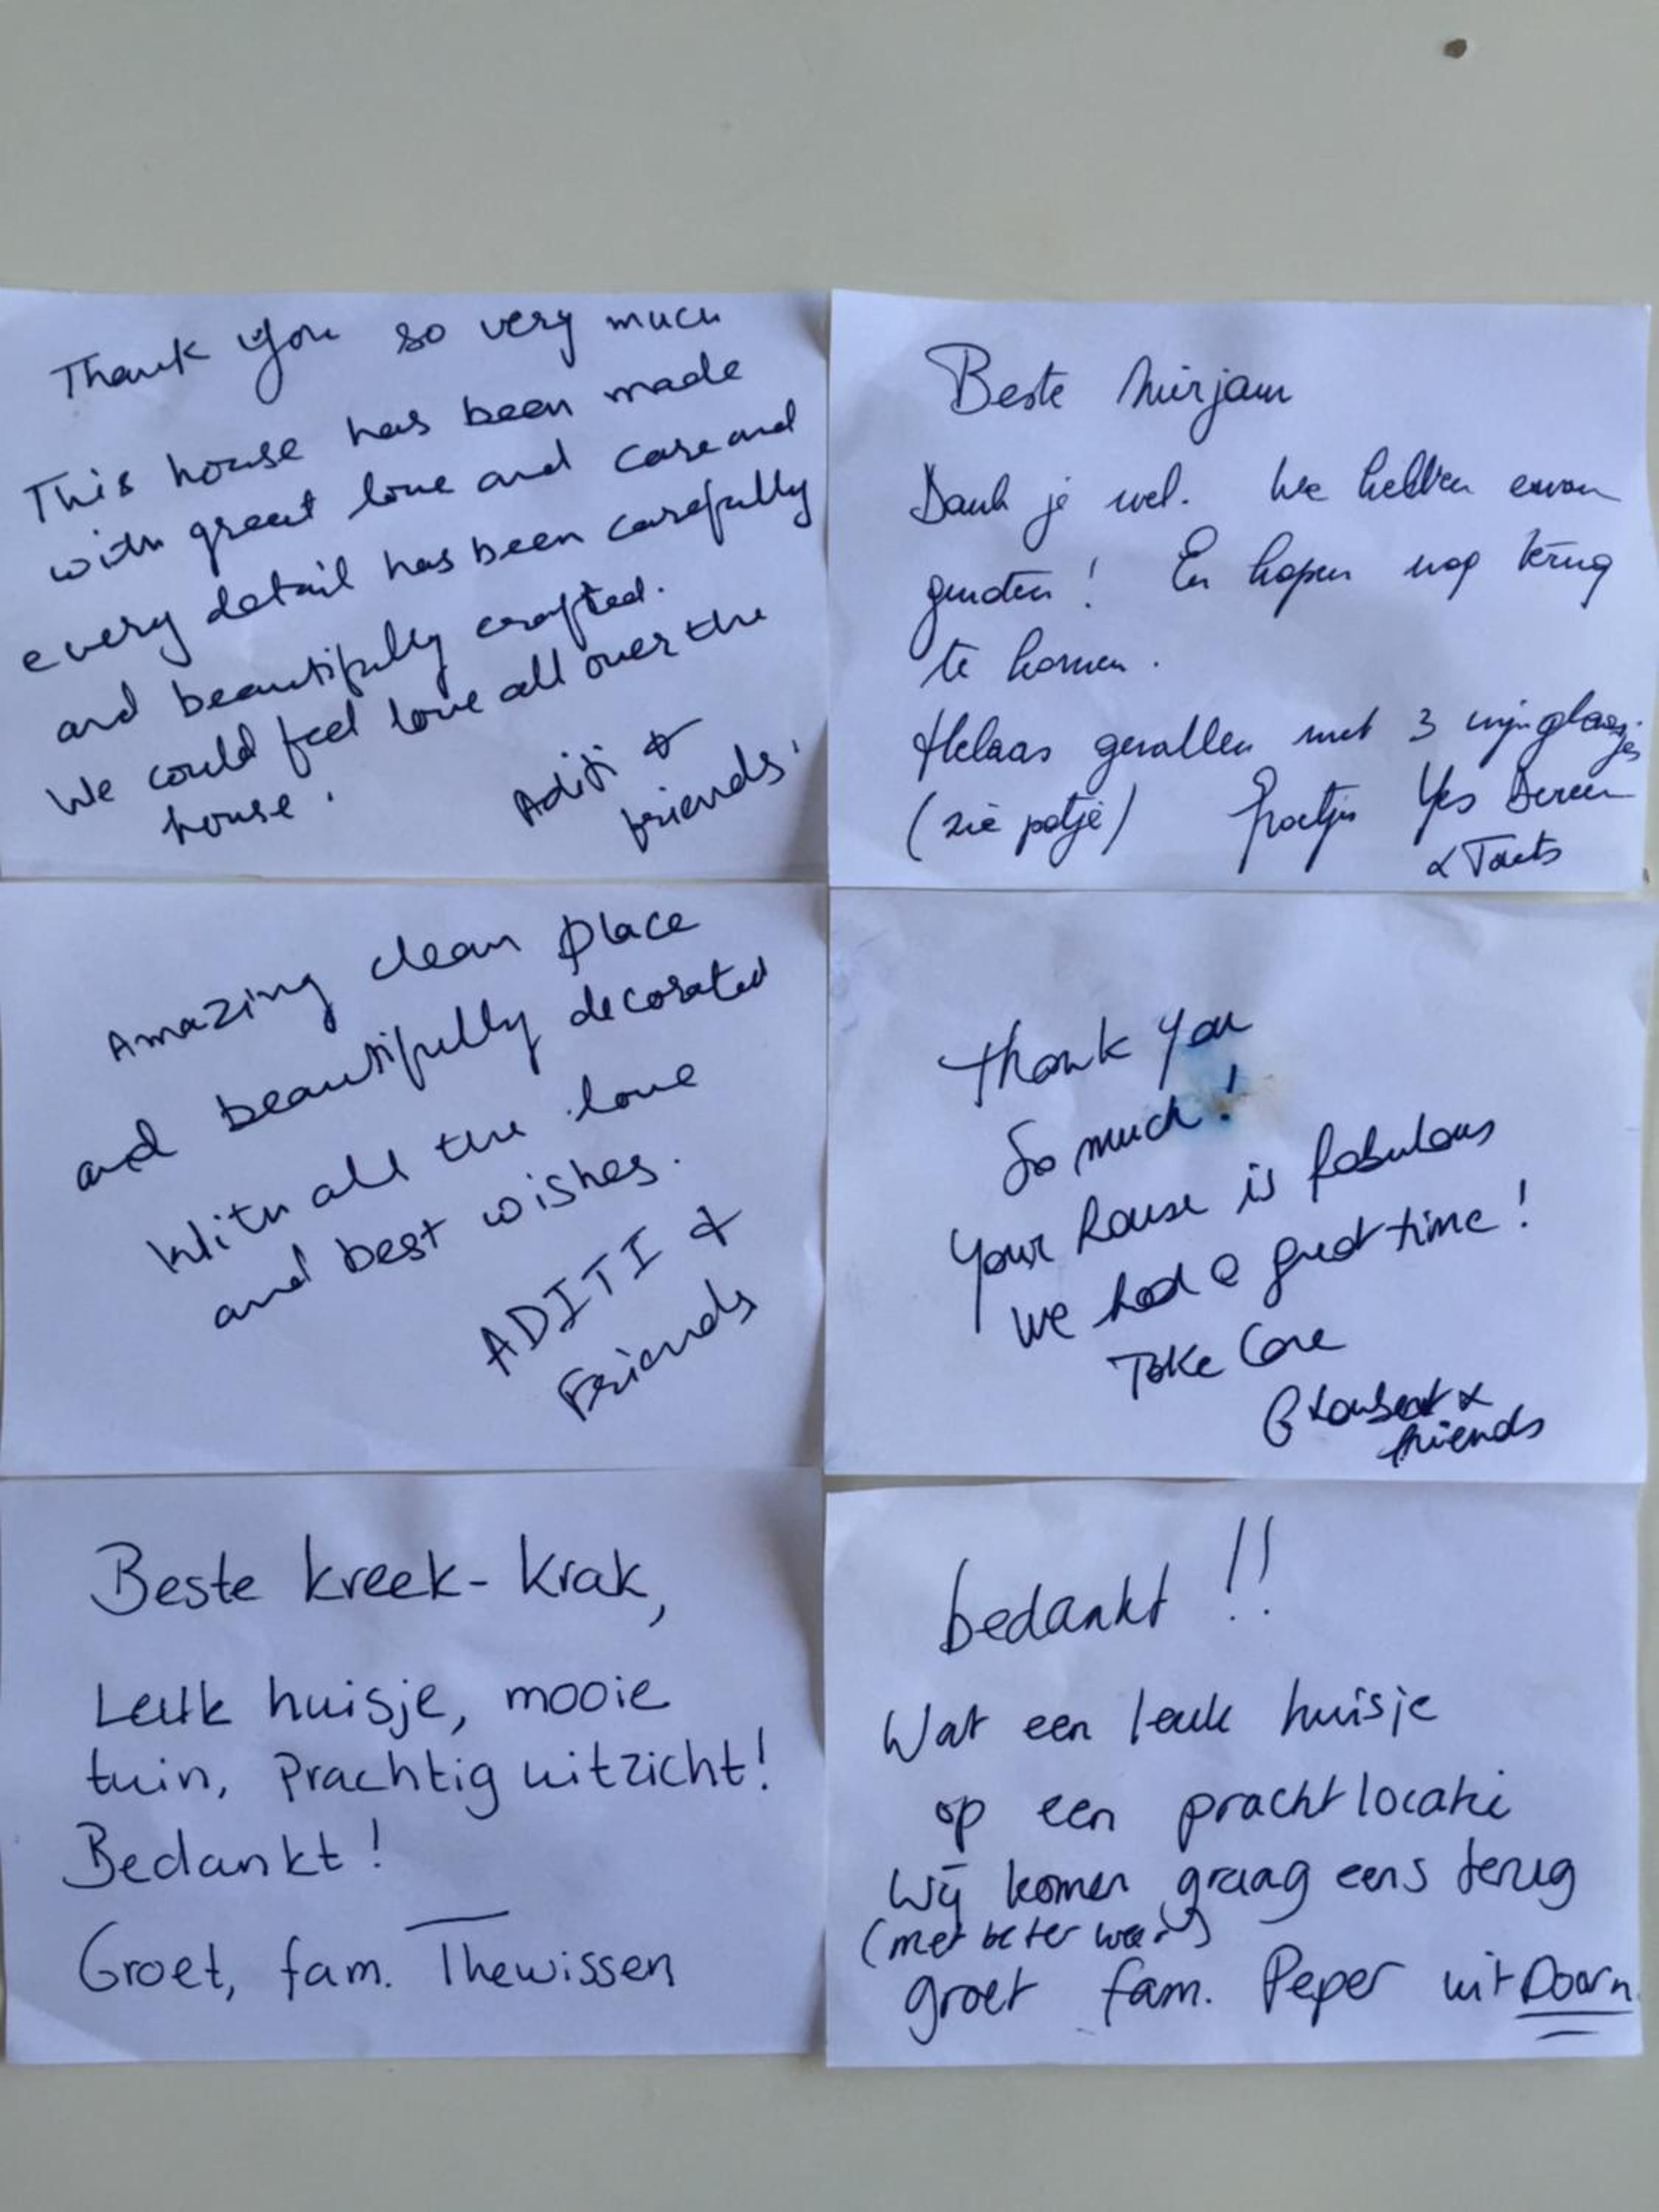 Thank you so very much
This house has been made
with great love and care and
every detail has been carefully
and beautifully crafted.
We could feel love all over the
house.
Aditi &
friends.
Beste Mirjam
Dank je wel. We hebben ervan
genoten! En hopen nog terug
te komen.
Helaas gevallen met 3 wijnglaasjes
(zie potje) Groetjes Yes
& Taets
Amazing clean place
and beautifully decorated
With all the love
and best wishes.
ADITI &
Friends
Thank you
So much!
Your house is fabulous
We had a great time!
Take Care
&
friends
Beste kreek-krak,
Leuk huisje, mooie
tuin, Prachtig uitzicht!
Bedankt!
Groet, fam. Thewissen
bedankt!!
Wat een leuk huisje
op een pracht locatie
Wij komen graag eens terug
(met beter weer)
groet fam. Peper uit Doorn.